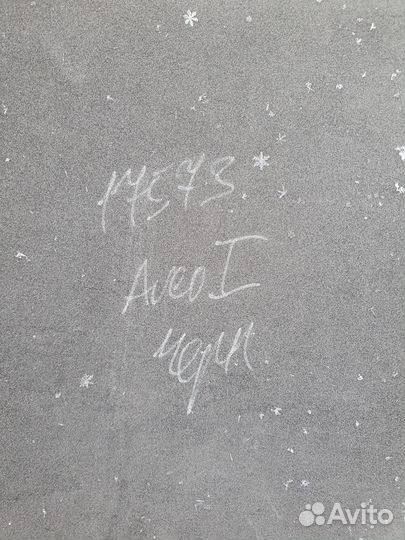 17573
Aveo I
черн
Avito